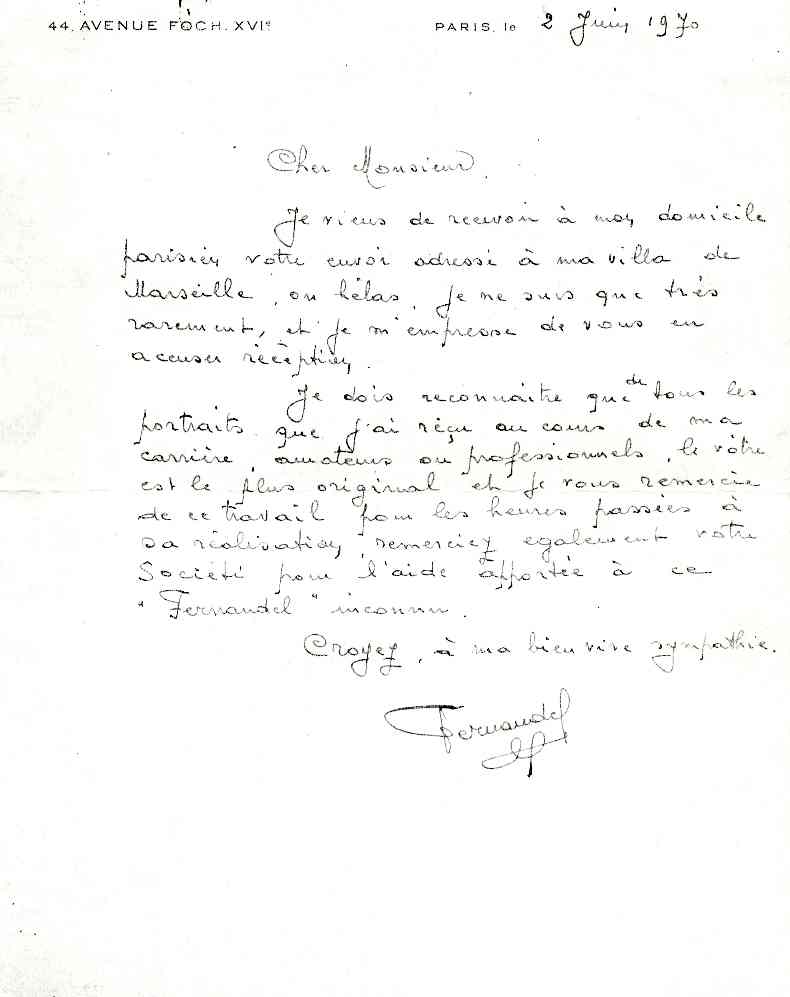 44, AVENUE FOCH. XVIe PARIS, le 2 Juin 1970
Cher Monsieur,
Je viens de recevoir à mon domicile
parisien votre envoi adressé à ma villa de
Marseille, ou hélas, je ne suis que très
rarement, et je m'empresse de vous en
accuser réception.
Je dois reconnaitre que de tous les
portraits que j'ai reçu au cours de ma
carrière, amateurs ou professionnels, le vôtre
est le plus original et je vous remercie
de ce travail pour les heures passées à
sa réalisation, remerciez egalement votre
Société pour l'aide apportée à ce
"Fernandel" inconnu.
Croyez, à ma bien vive sympathie.
Fernandel